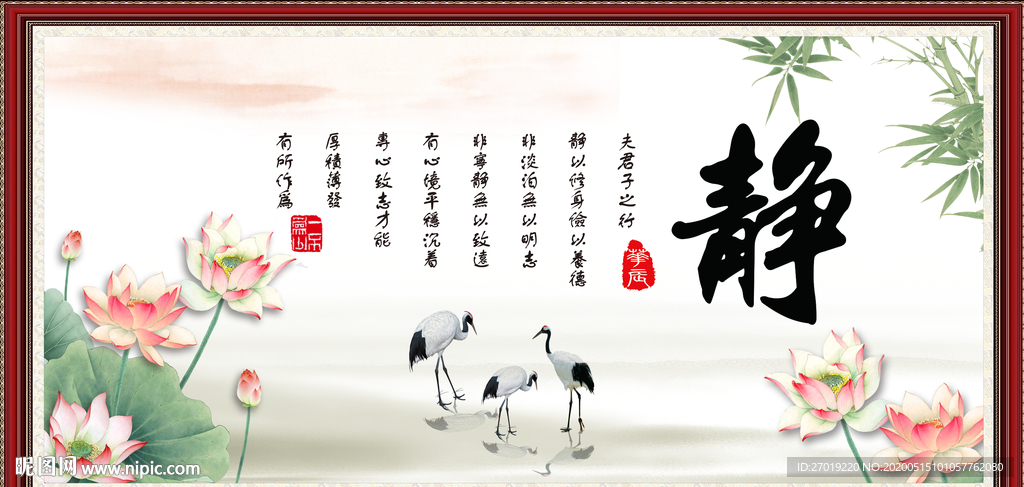 静
夫君子之行
静以修身儉以養德
非淡泊無以明志
非寧静無以致遠
有心境平穩沉着
專心致志才能
厚積薄發
有所作爲
昵图网 www.nipic.com
ID:27019220 NO:20200515101057762080